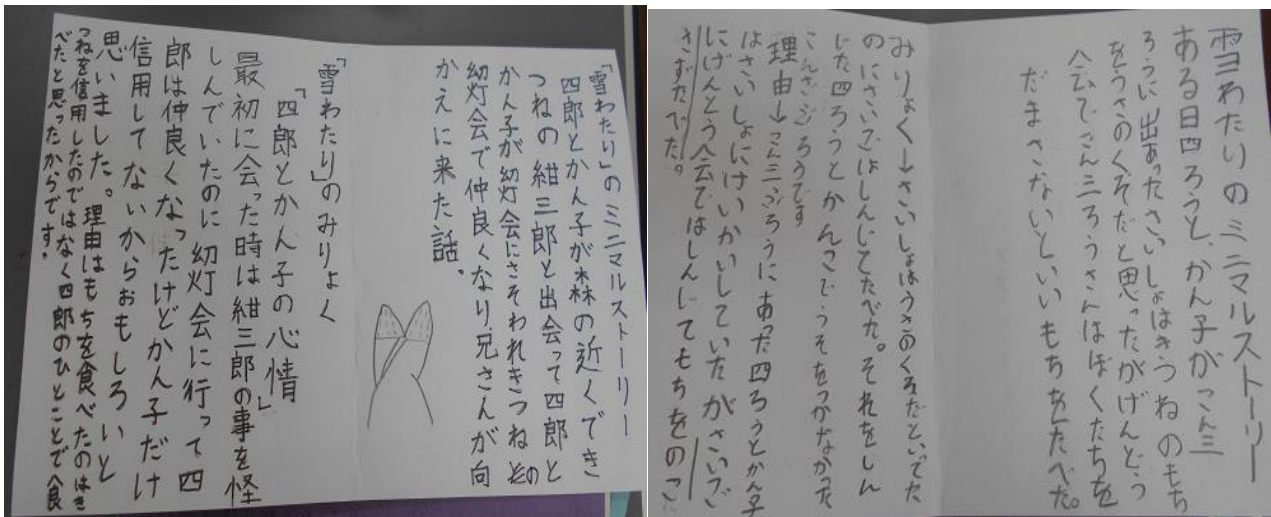 「雪わたり」のミニマルストーリー
四郎とかん子が森の近くでき
つねの紺三郎と出会って四郎と
かん子が幻灯会にさそわれきつねの
幻灯会で仲良くなり兄さんが向
かえに来た話。
「雪わたり」のみりょく
「四郎とかん子の心情」
最初に会った時は紺三郎の事を怪
しんでいたのに幻灯会に行って四
郎は仲良くなったけどかん子だけ
信用してないからおもしろいと
思いました。理由はもちを食べたのはき
つねを信用したのではなく四郎のひとことで食
べたと思ったからです。
雪わたりのミニマルストーリー
ある日四ろうと、かん子がこん三
ろうに出あったさいしょはきつねのもち
をうさのくそだと思ったがげんとう
会でこん三ろうさんはぼくたちを
だまさないといいもちをたべた。
みりょく→さいしょはうさのくそだといってた
のにさいごはしんじてたべた。それをしん
じた四ろうとかんこでうそをつかなかった
こんざぶろうです
理由→こん三ぶろうにあった四ろうとかん子
はさいしょにけいかいしていたがさいご
にげんとう会ではしんじてもちをのこ
さずたべた。